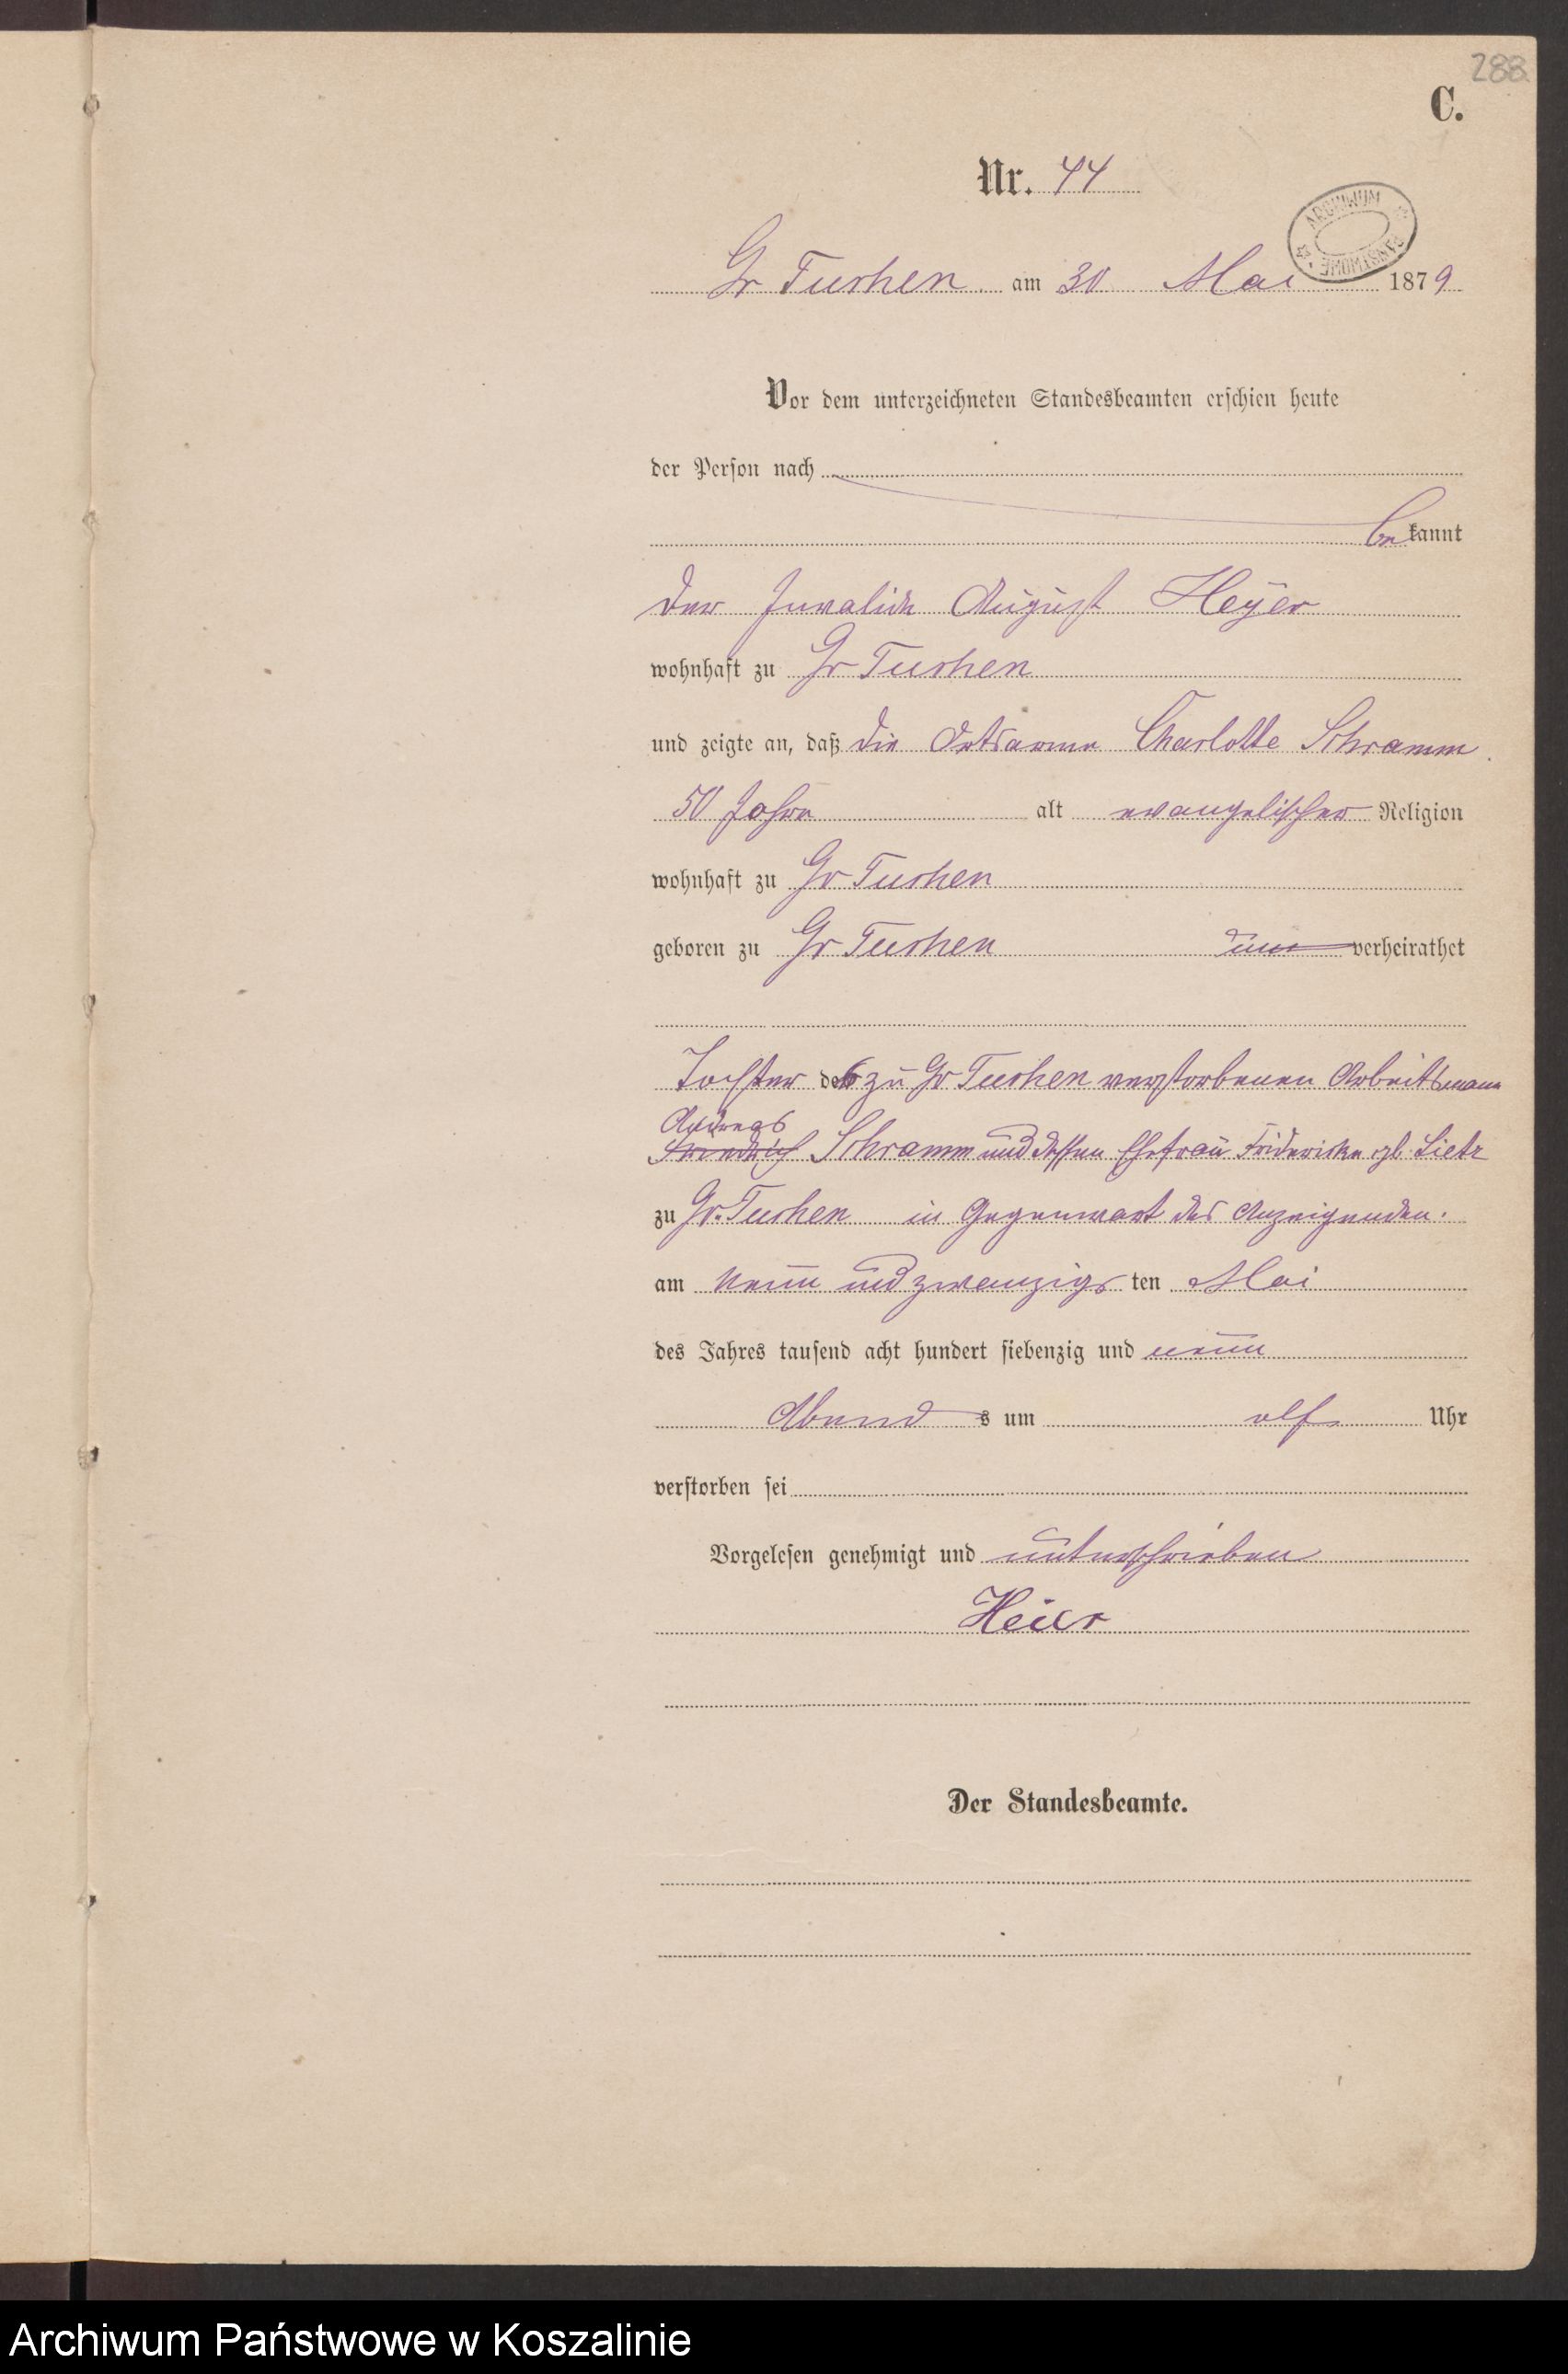 288
C.
Nr. 44
ARCHIWUM PAŃSTWOWE
Gr Tuchen am 30 Mai 1879
Vor dem unterzeichneten Standesbeamten erschien heute
der Person nach
bekannt
der Invalide August Heyer
wohnhaft zu Gr Tuchen
und zeigte an, daß die Ortsarme Charlotte Schramm
50 Jahre alt evangelischer Religion
wohnhaft zu Gr Tuchen
geboren zu Gr Tuchen un verheirathet
Tochter des zu Gr Tuchen verstorbenen Arbeitsmann
Andreas
Friedrich Schramm und dessen Ehefrau Friderike gb. Lietz
zu Gr. Tuchen in Gegenwart des Anzeigenden.
am neun und zwanzigs ten Mai
des Jahres tausend acht hundert siebenzig und neun
Abend s um elf Uhr
verstorben sei
Vorgelesen genehmigt und unterschrieben
Heier
Der Standesbeamte.
Archiwum Państwowe w Koszalinie